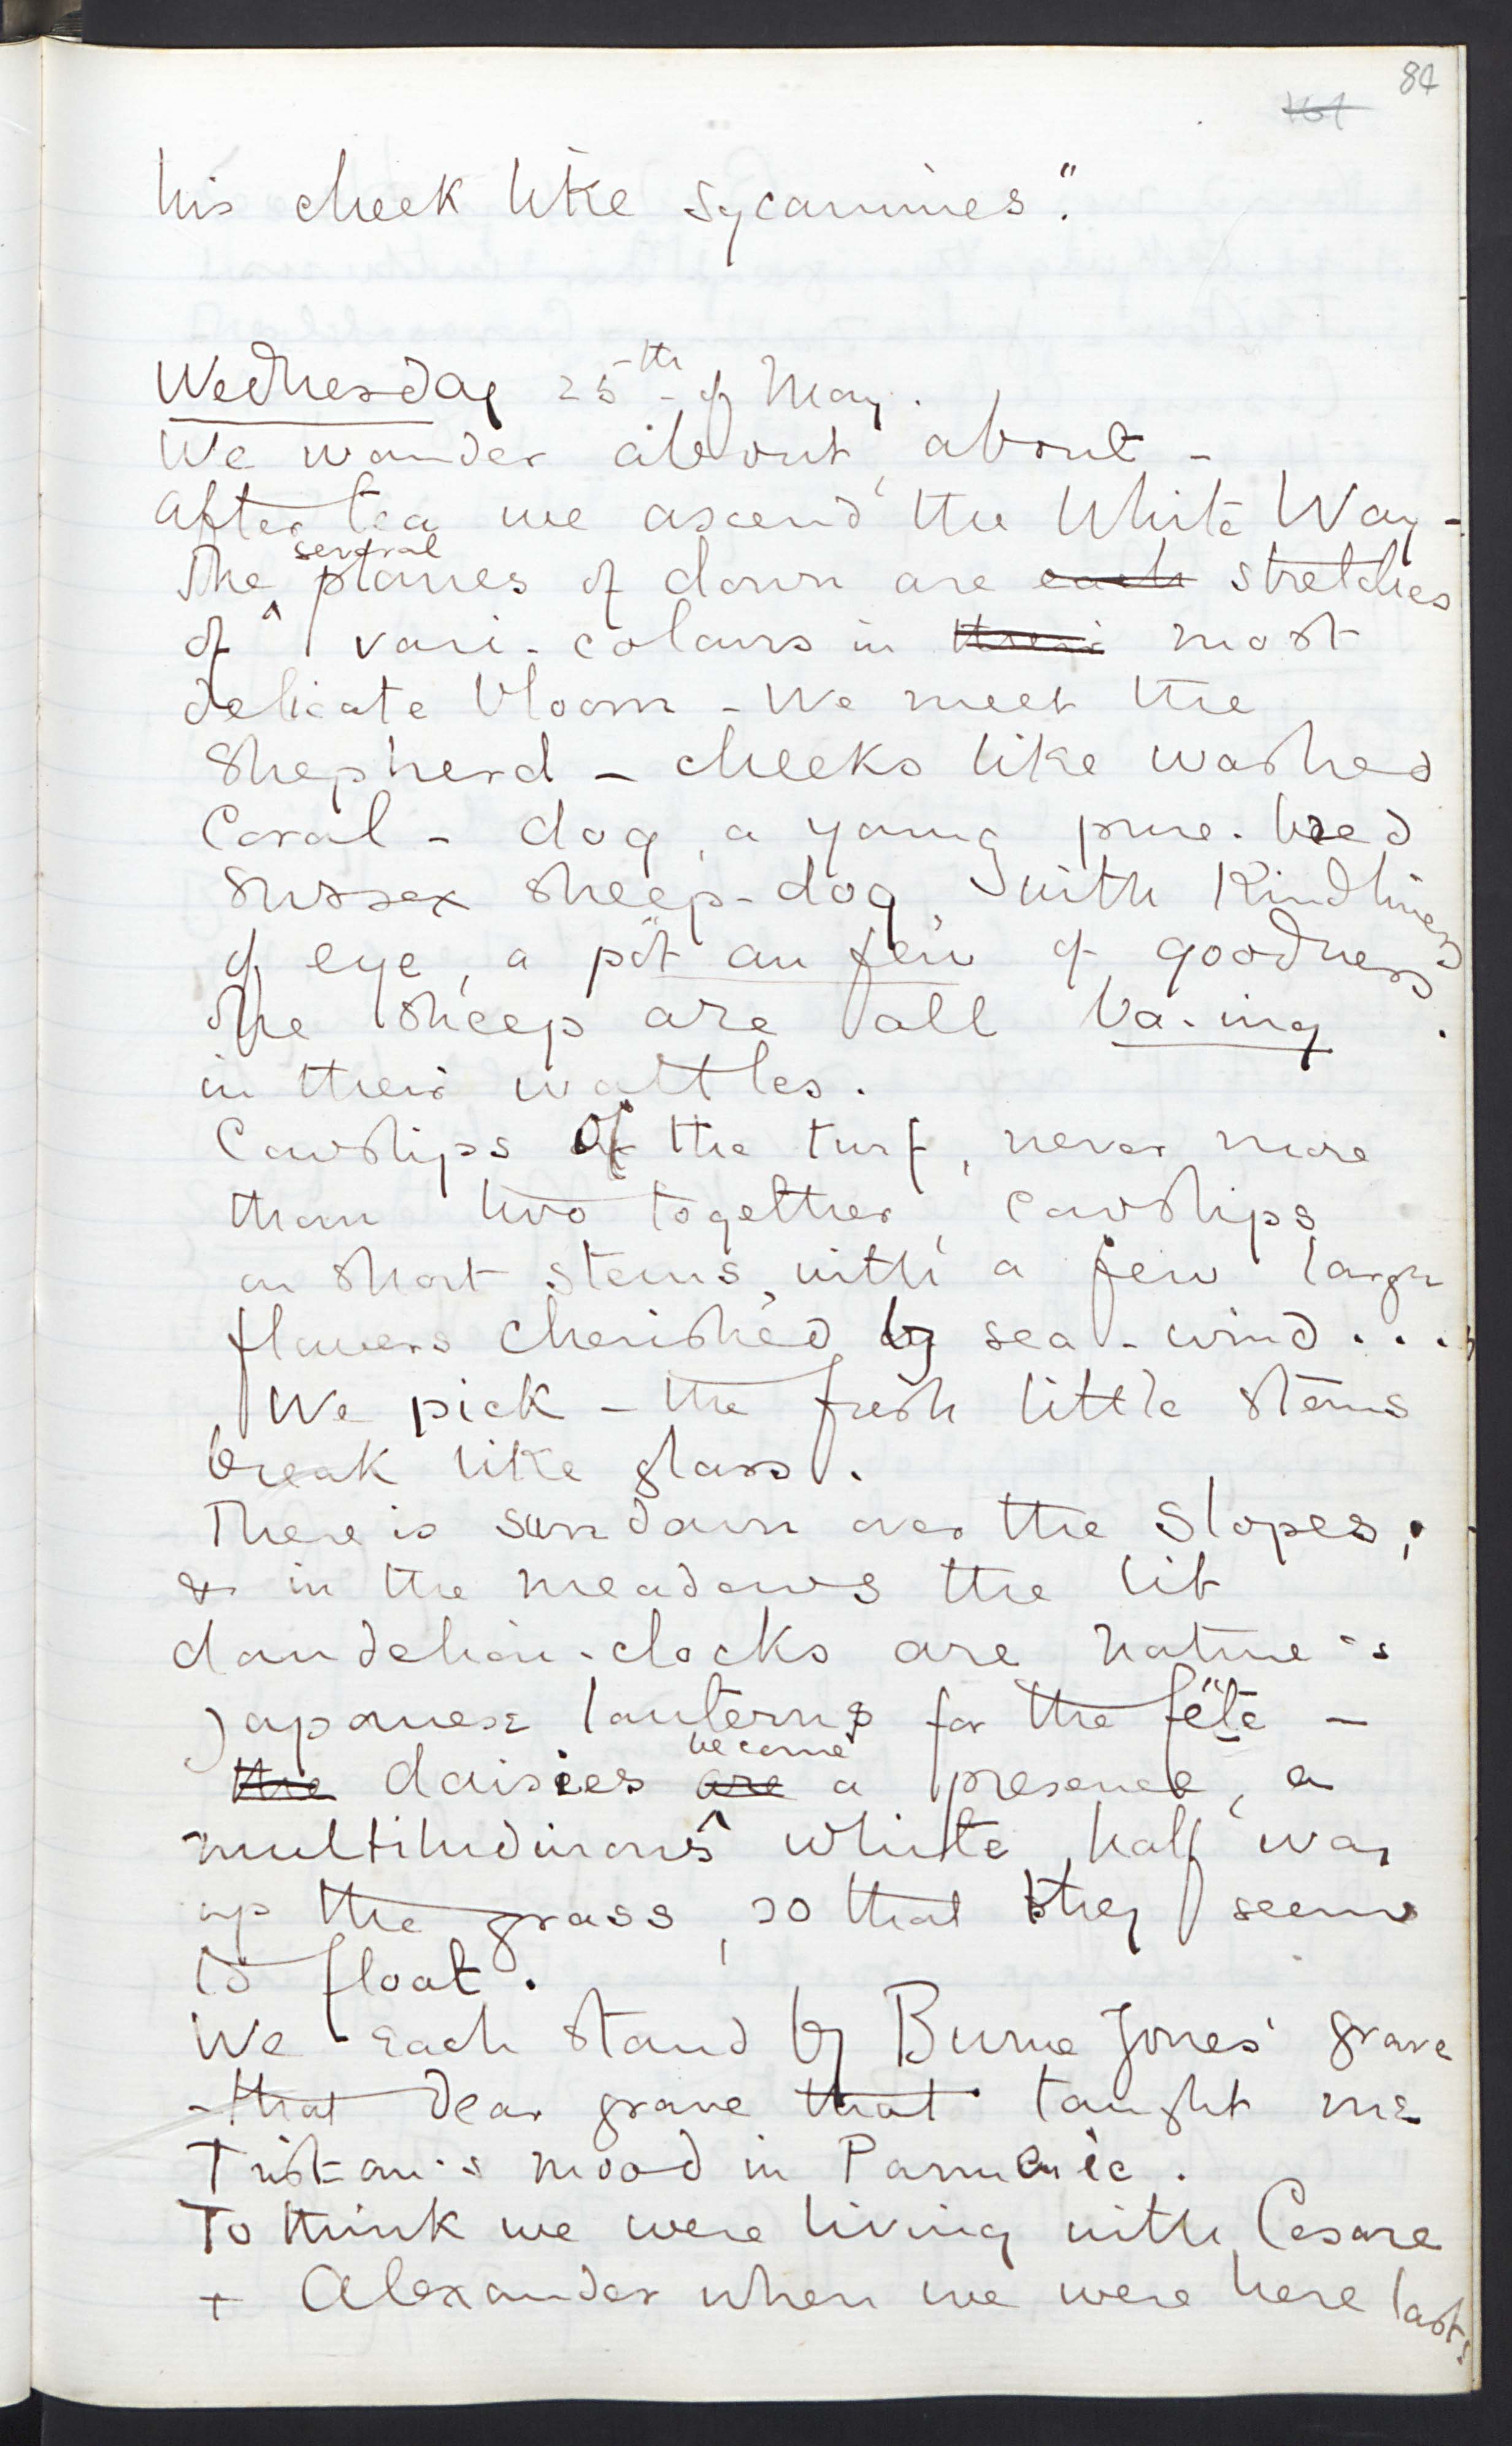 84
his cheek like sycamines".
Wednesday 25th of May.
We wander about, about -
After tea we ascend the White Way -
The several planes of down are each stretches
of vari-colours in their most
delicate bloom - We meet the
Shepherd - cheeks like washed
Coral - dog, a young pure-bred
Sussex sheep-dog, with Kindliness
of eye, a pöt au feu of goodness.
The sheep are all ba-ing
in their wattles.
Cowslips of the turf, never more
than two together, cowslips
on short stems, with a few large
flowers cherished by sea-wind ...
We pick - the fresh little stems
break like glass.
There is sundown over the slopes;
& in the meadows the lit
dandelion-clocks are nature's
Japanese lanterns for the fête -
the daisies are become a presence, a
multitudinous white half way
up the grass, so that they seem
to float.
We each stand by Burne Jones' grave
- that dear grave that taught me
Tristan's mood in Parmenie.
To think we were living with Cesare
+ Alexander when we were here last;